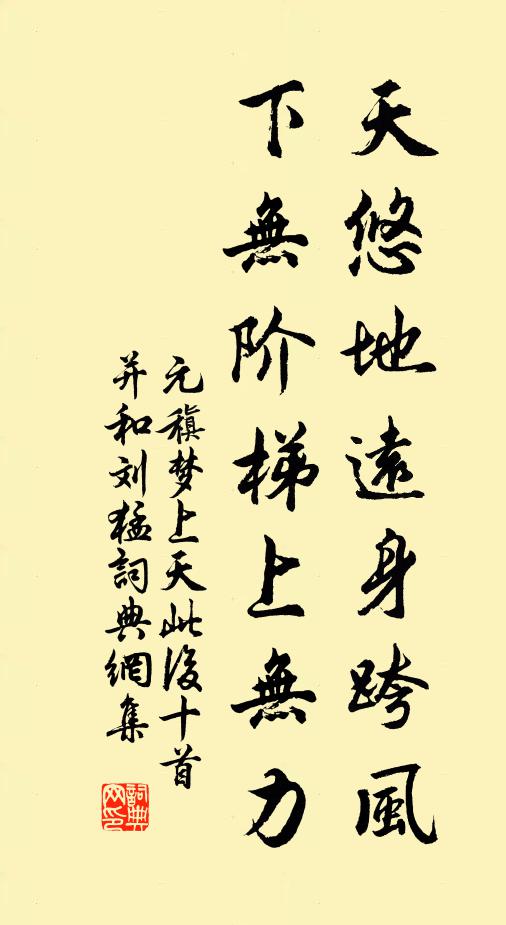 天悠地遠身跨風
下無阶梯上無力
元稹梦上天此後十首
并和刘猛詞典網集
詞典
网印